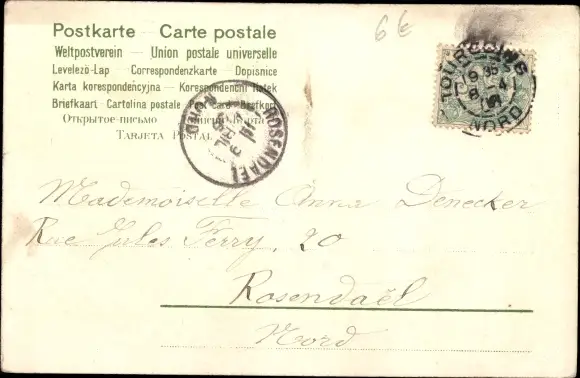 66
Postkarte — Carte postale
Weltpostverein — Union postale universelle
Levelező-Lap — Correspondenzkarte — Dopisnice
Karta korespondencyjna — Korespondenční lístek
Briefkaart — Cartolina postale — Post Card — Brefkort
Открытое-письмо
TARJETA POSTAL
TOURCOING
NORD
ROSENDAEL
NORD
Mademoiselle Anna Denecker
Rue Jules Ferry, 20
Rosendaël
Nord